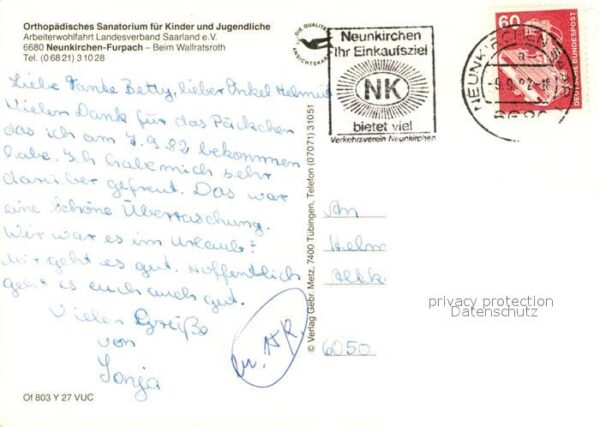 Orthopädisches Sanatorium für Kinder und Jugendliche
Arbeiterwohlfahrt Landesverband Saarland e.V.
6680 Neunkirchen-Furpach – Beim Wallratsroth
Tel. (0 68 21) 3 10 28
Liebe Tante Betty, lieber Onkel Helmut
Vielen Dank für das Päckchen
das ich am 7.9.82 bekommen
habe. Ich habe mich sehr
darüber gefreut. Das war
eine schöne Überraschung.
Wie war es im Urlaub?
Mir geht es gut. Hoffentlich
geht es euch auch gut.
Viele Grüße
von
Sonja
Of 803 Y 27 VUC
© Verlag Gebr. Metz, 7400 Tübingen, Telefon (07071) 31051
DIE QUALITÄTS
ANSICHTSKARTE
Neunkirchen
Ihr Einkaufsziel
NK
bietet viel
Verkehrsverein Neunkirchen
60
DEUTSCHE BUNDESPOST
NEUNKIRCHEN
-9.9.82
6680
An
Helm
6050
privacy protection
Datenschutz